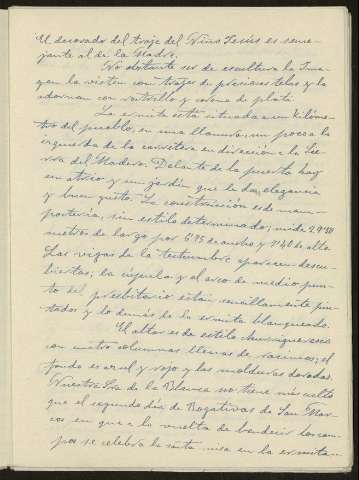 El decorado del traje del Niño Jesús es seme-
jante al de la Madre.
No obstante ser de escultura la Ima-
gen la visten con trajes de preciosas telas y la
adornan con rostrillo y corona de plata.
La ermita está situada a un kilóme-
tro del pueblo, en una llanura, un poco a la
izquierda de la carretera en dirección a la Sie-
rra del Madero. Delante de la puerta hay
un atrio y un jardín que le dan elegancia
y buen gusto. La construcción es de mam-
postería, sin estilo determinado; mide
metros de largo por 6'95 de ancho y 7'40 de alto.
Las vigas de la techumbre aparecen descu-
biertas; la cúpula y el arco de medio pun-
to del presbiterio están sencillamente pin-
tados y lo demás de la ermita blanqueado.
El altar es de estilo churrigueresco
con cuatro columnas llenas de racimos; el
fondo es azul y rojo y las molduras doradas.
Nuestra Sra de la Blanca no tiene más culto
que el segundo día de Rogativas de San Mar-
cos en que a la vuelta de bendecir los cam-
pos se celebra la santa misa en la ermita.